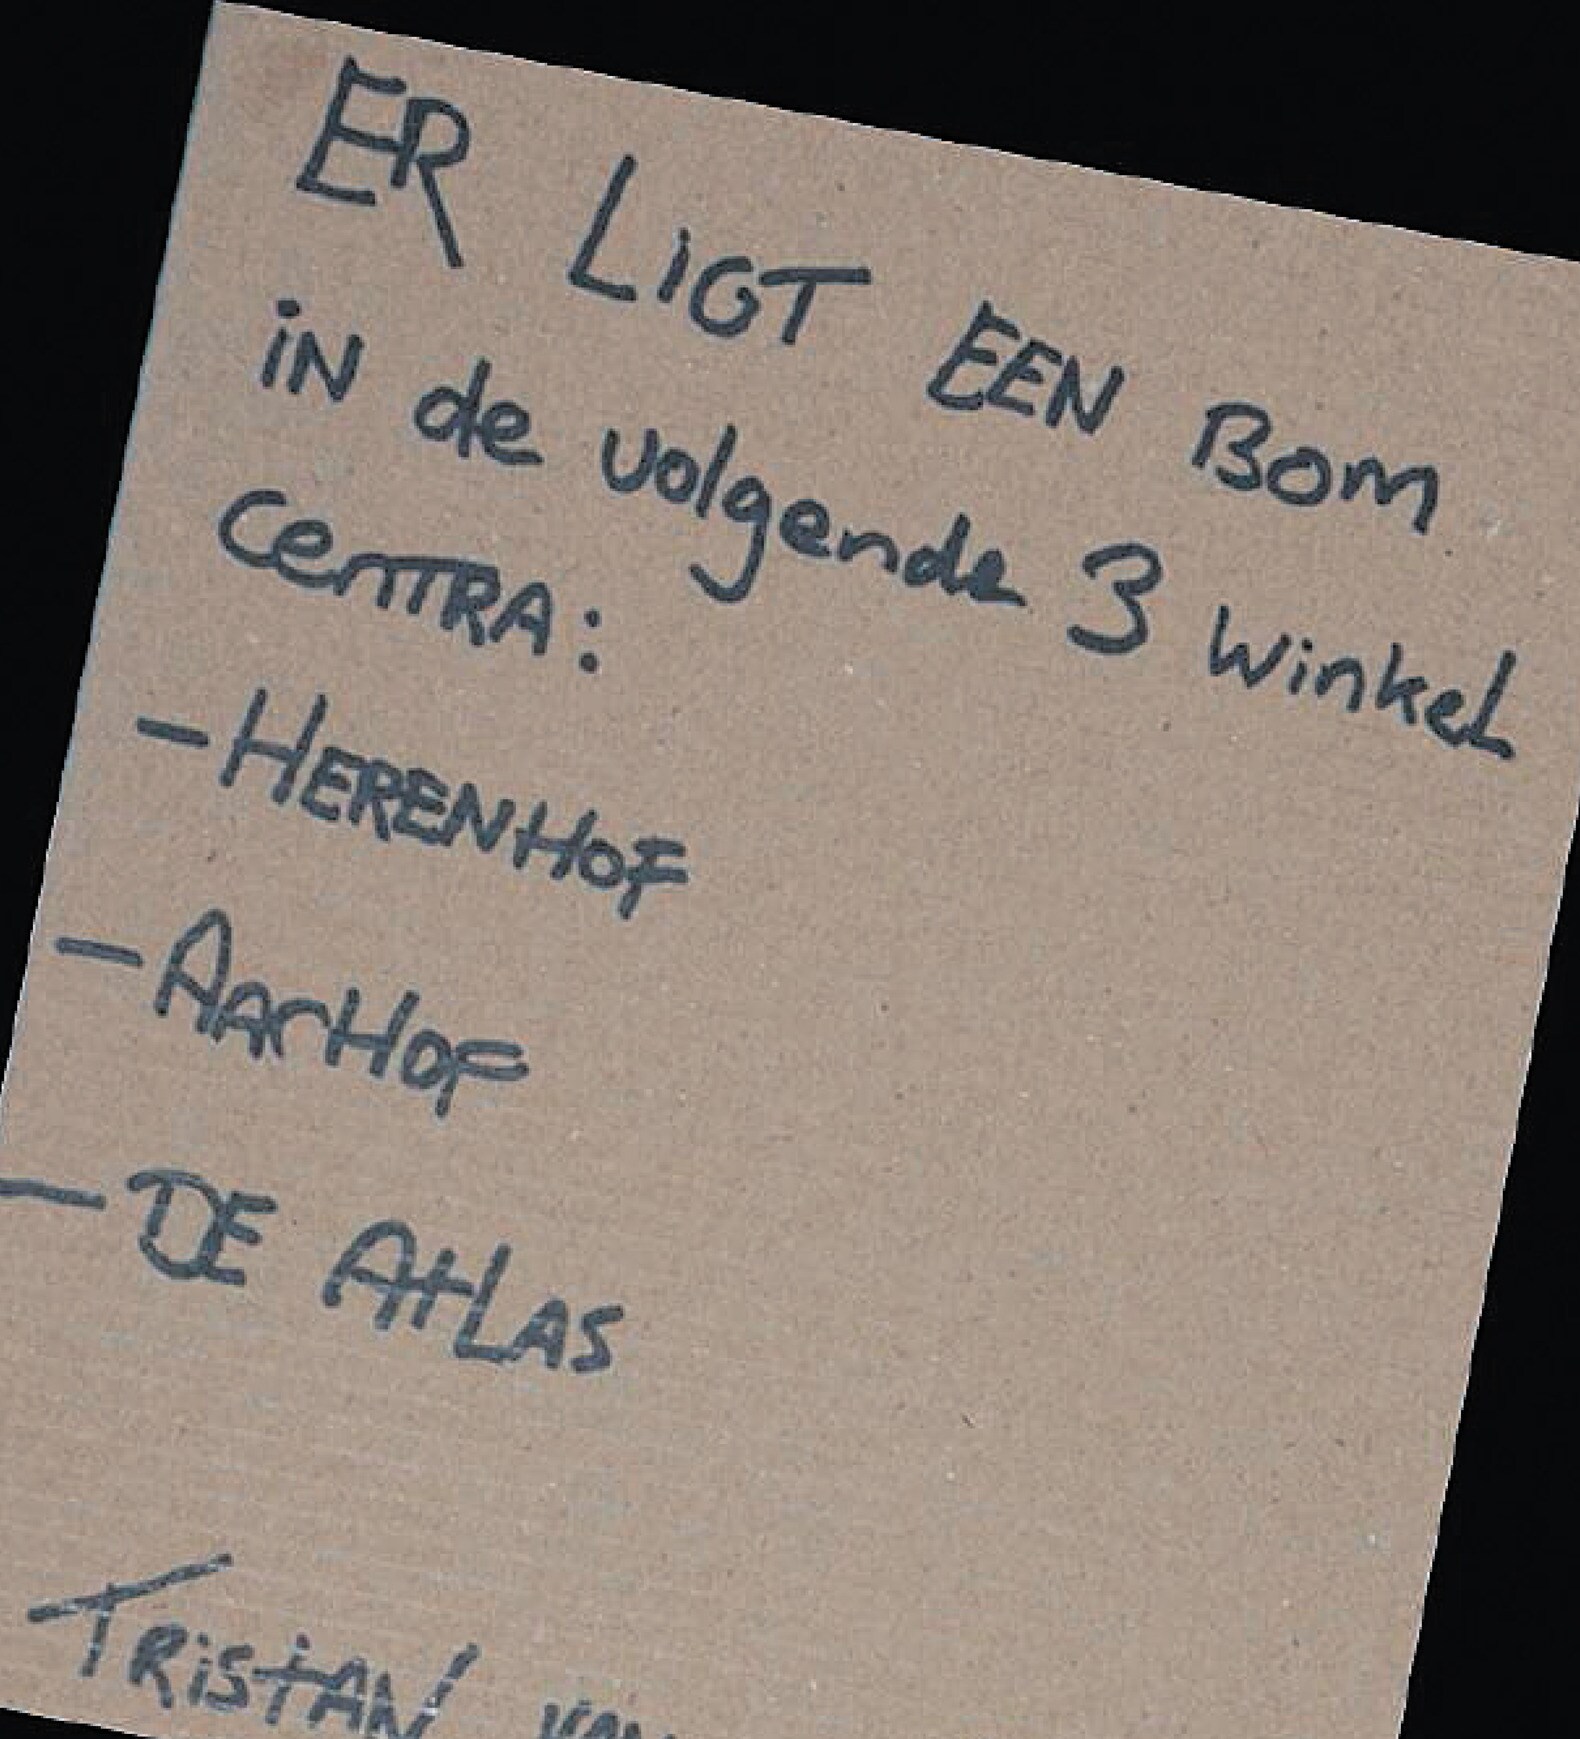 ER LiGT EEN Bom
iN de volgende 3 winkel
CenTRA:
- HERENHOF
- AarHOF
- DE AtLAS
TRiStAN